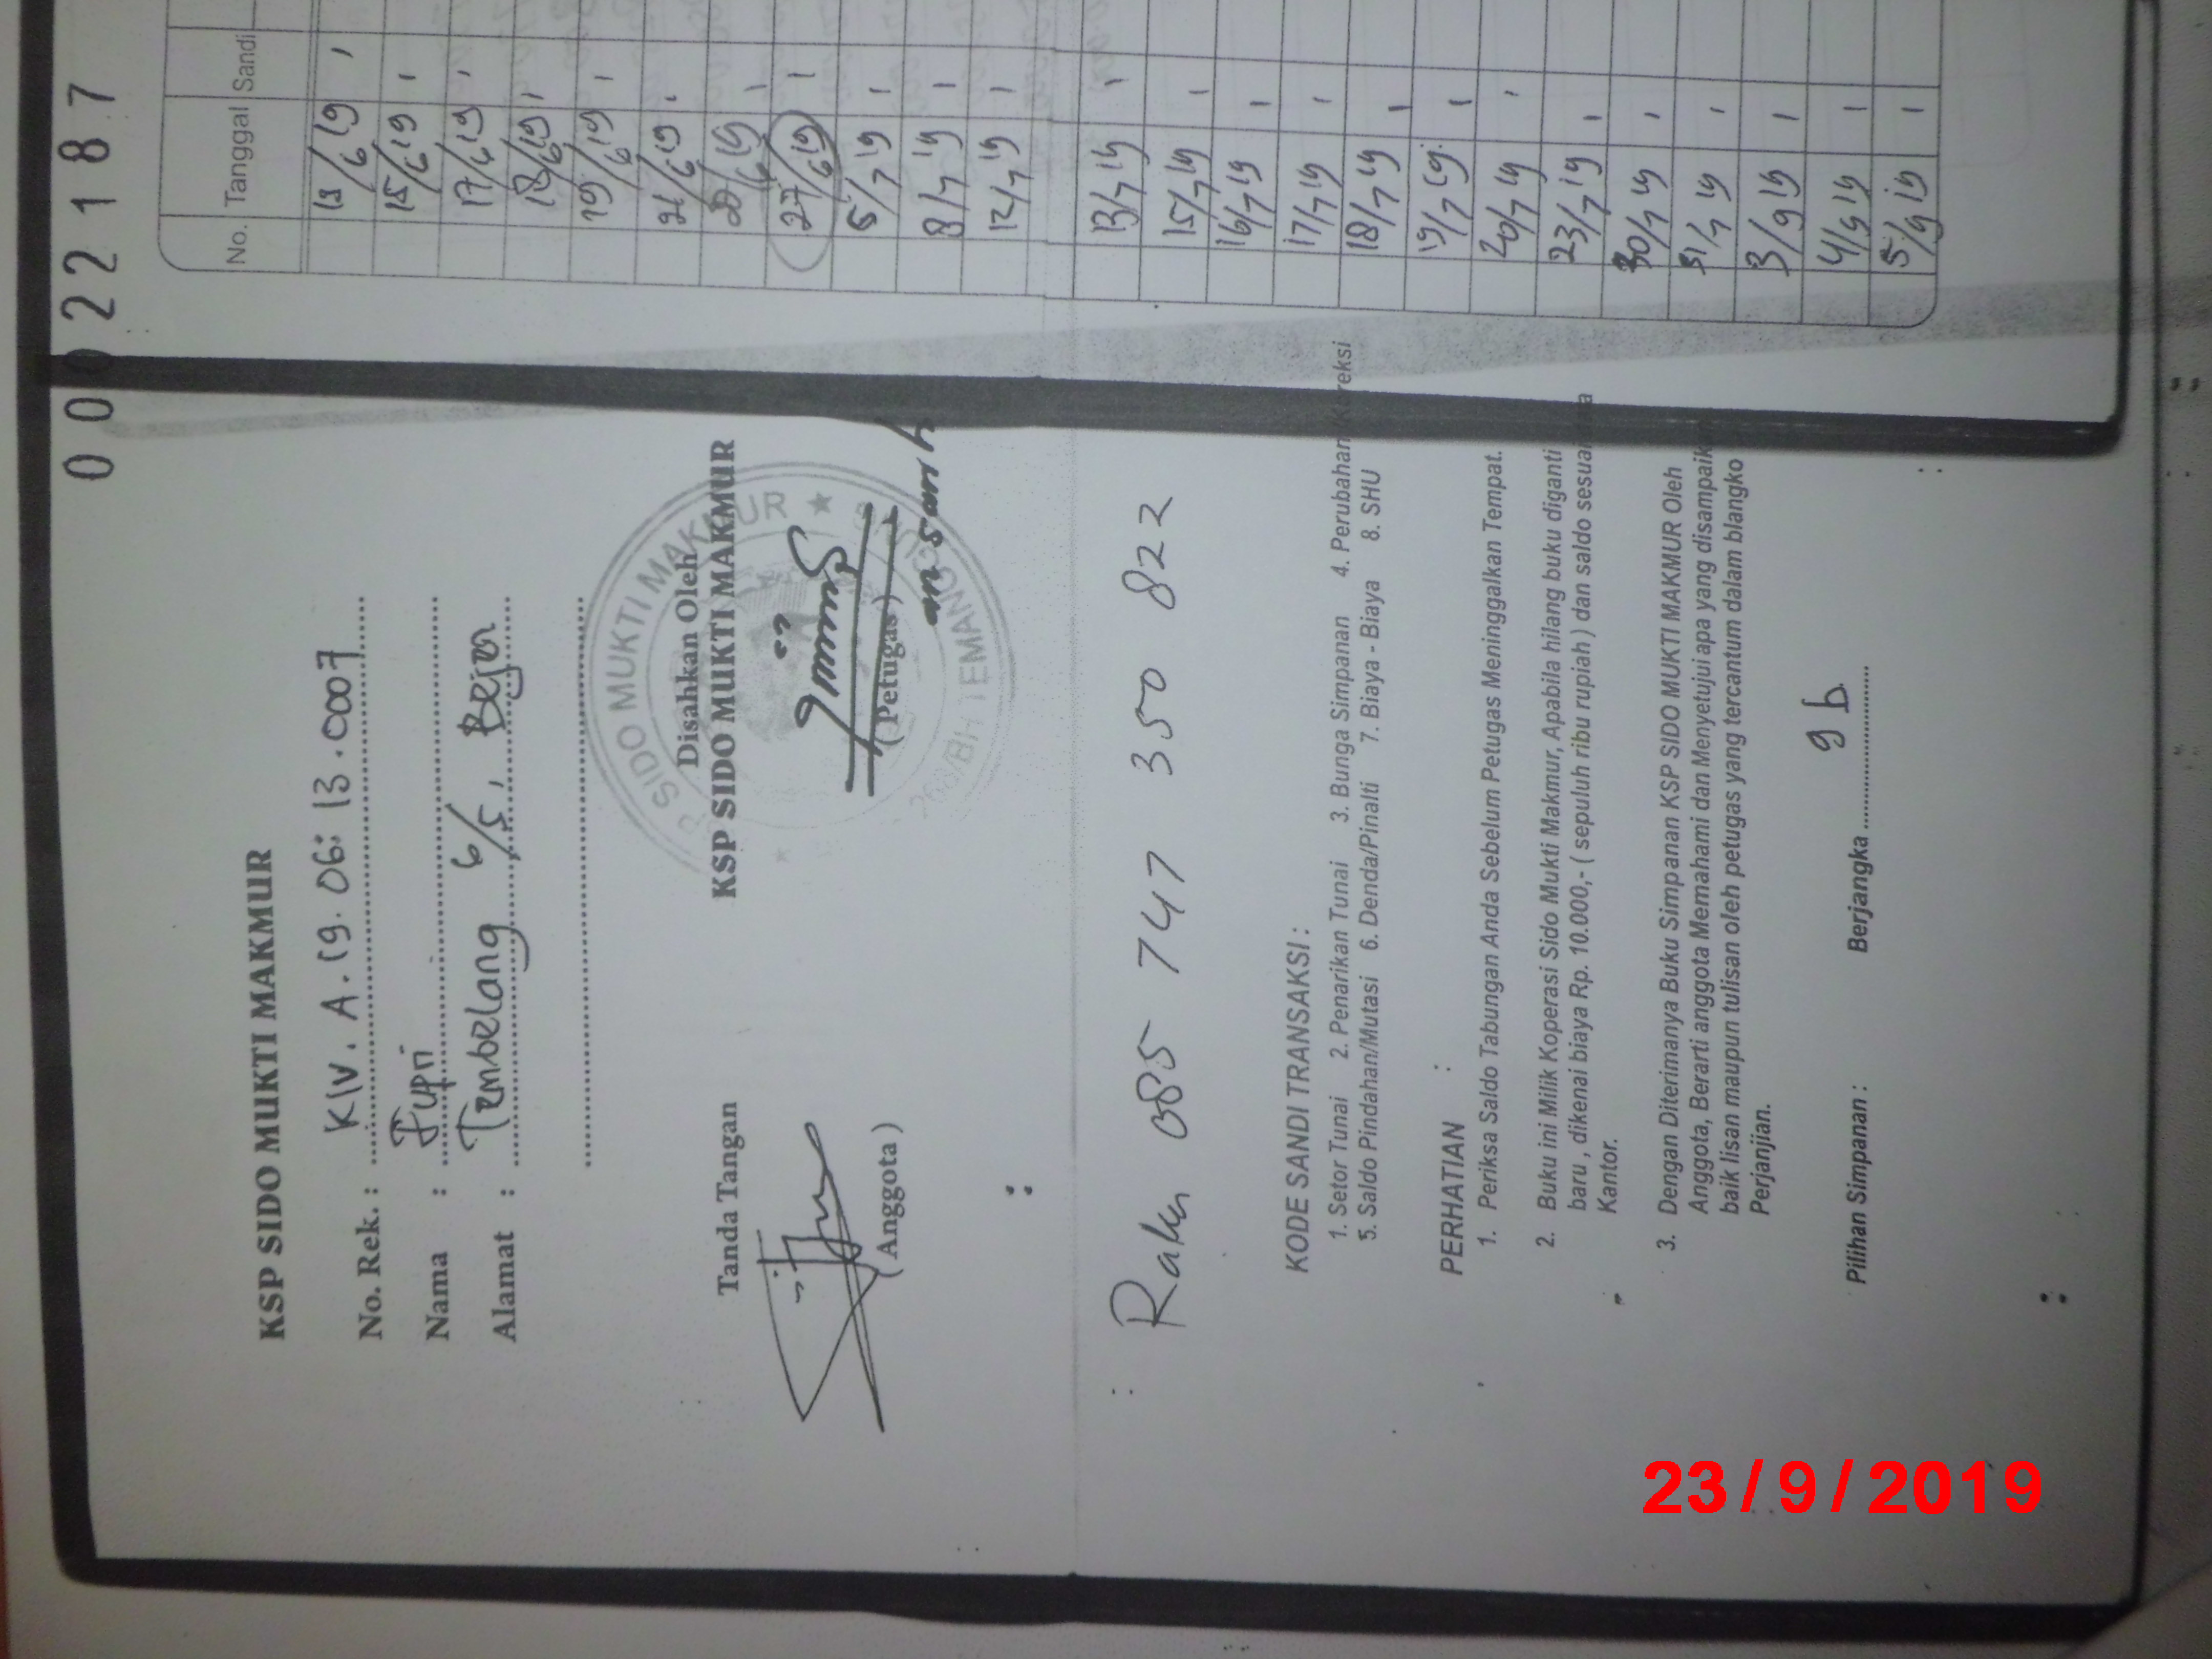 0002 2187
KSP SIDO MUKTI MAKMUR
No. Rek. : KIV. A. 19. 06: 13 .0007
Nama : Jupri
Alamat : Tembelang 6/5,
Disahkan Oleh
Tanda Tangan KSP SIDO MUKTI MAKMUR
KSP SIDO MUKTI MAKMUR ★
TEMANGGUNG
( Anggota ) ( Petugas )
085 747 350 822
KODE SANDI TRANSAKSI :
1. Setor Tunai 2. Penarikan Tunai 3. Bunga Simpanan 4. Perubahan/Koreksi
5. Saldo Pindahan/Mutasi 6. Denda/Pinalti 7. Biaya - Biaya 8. SHU
PERHATIAN :
1. Periksa Saldo Tabungan Anda Sebelum Petugas Meninggalkan Tempat.
2. Buku ini Milik Koperasi Sido Mukti Makmur, Apabila hilang buku diganti
baru , dikenai biaya Rp. 10.000,- ( sepuluh ribu rupiah ) dan saldo sesuai
Kantor.
3. Dengan Diterimanya Buku Simpanan KSP SIDO MUKTI MAKMUR Oleh
Anggota, Berarti anggota Memahami dan Menyetujui apa yang disampaikan
baik lisan maupun tulisan oleh petugas yang tercantum dalam blangko
Perjanjian.
Pilihan Simpanan : Berjangka 9 b.
No. Tanggal Sandi
13/6 19 1
15/6 19 1
17/6 19 1
18/6 19 1
19/6 19 1
21/6 19 1
27/6 19 1
5/7 19 1
8/7 19 1
12/7 19 1
13/7 19 1
15/7 19 1
16/7 19 1
17/7 19 1
18/7 19 1
19/7 19. 1
20/7 19 1
23/7 19 1
30/7 19 1
31/7 19 1
3/9 19 1
4/9 19 1
5/9 19 1
23/9/2019